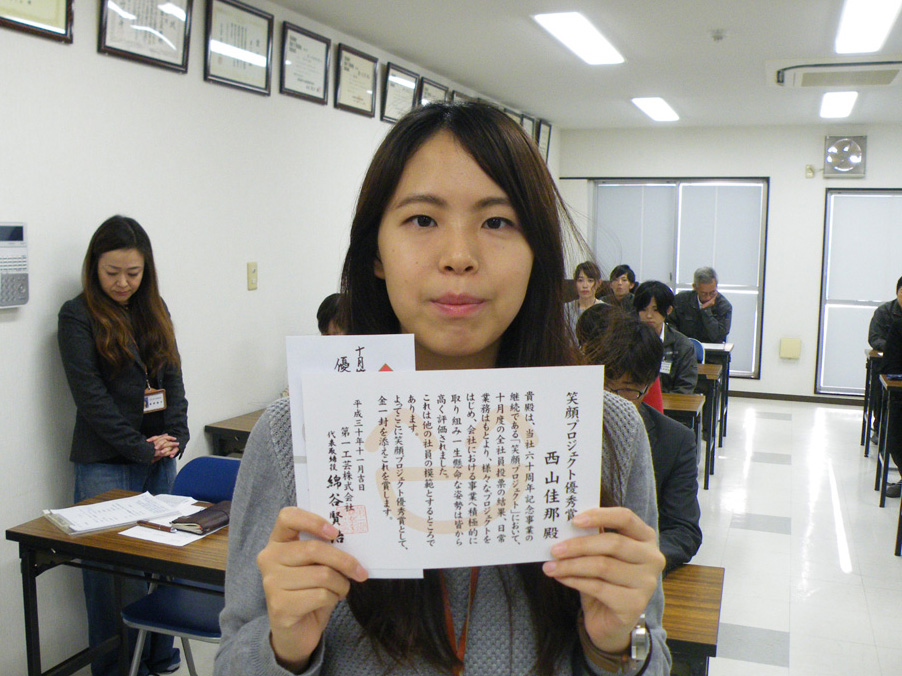 笑顔プロジェクト優秀賞
西山佳那殿
貴殿は、当社六十周年記念事業の
継続である「笑顔プロジェクト」において、
十月度の全社員投票の結果、日常
業務はもとより、様々なプロジェクトを
はじめ、会社における事業へ積極的に
取り組み一生懸命な姿勢は皆から
高く評価されました。
これは他の社員の模範とするところで
あります。
よってここに笑顔プロジェクト優秀賞として、
金一封を添えこれを賞します。
平成三十年十一月吉日
第一工芸株式会社
代表取締役 綿谷賢治
十月
優